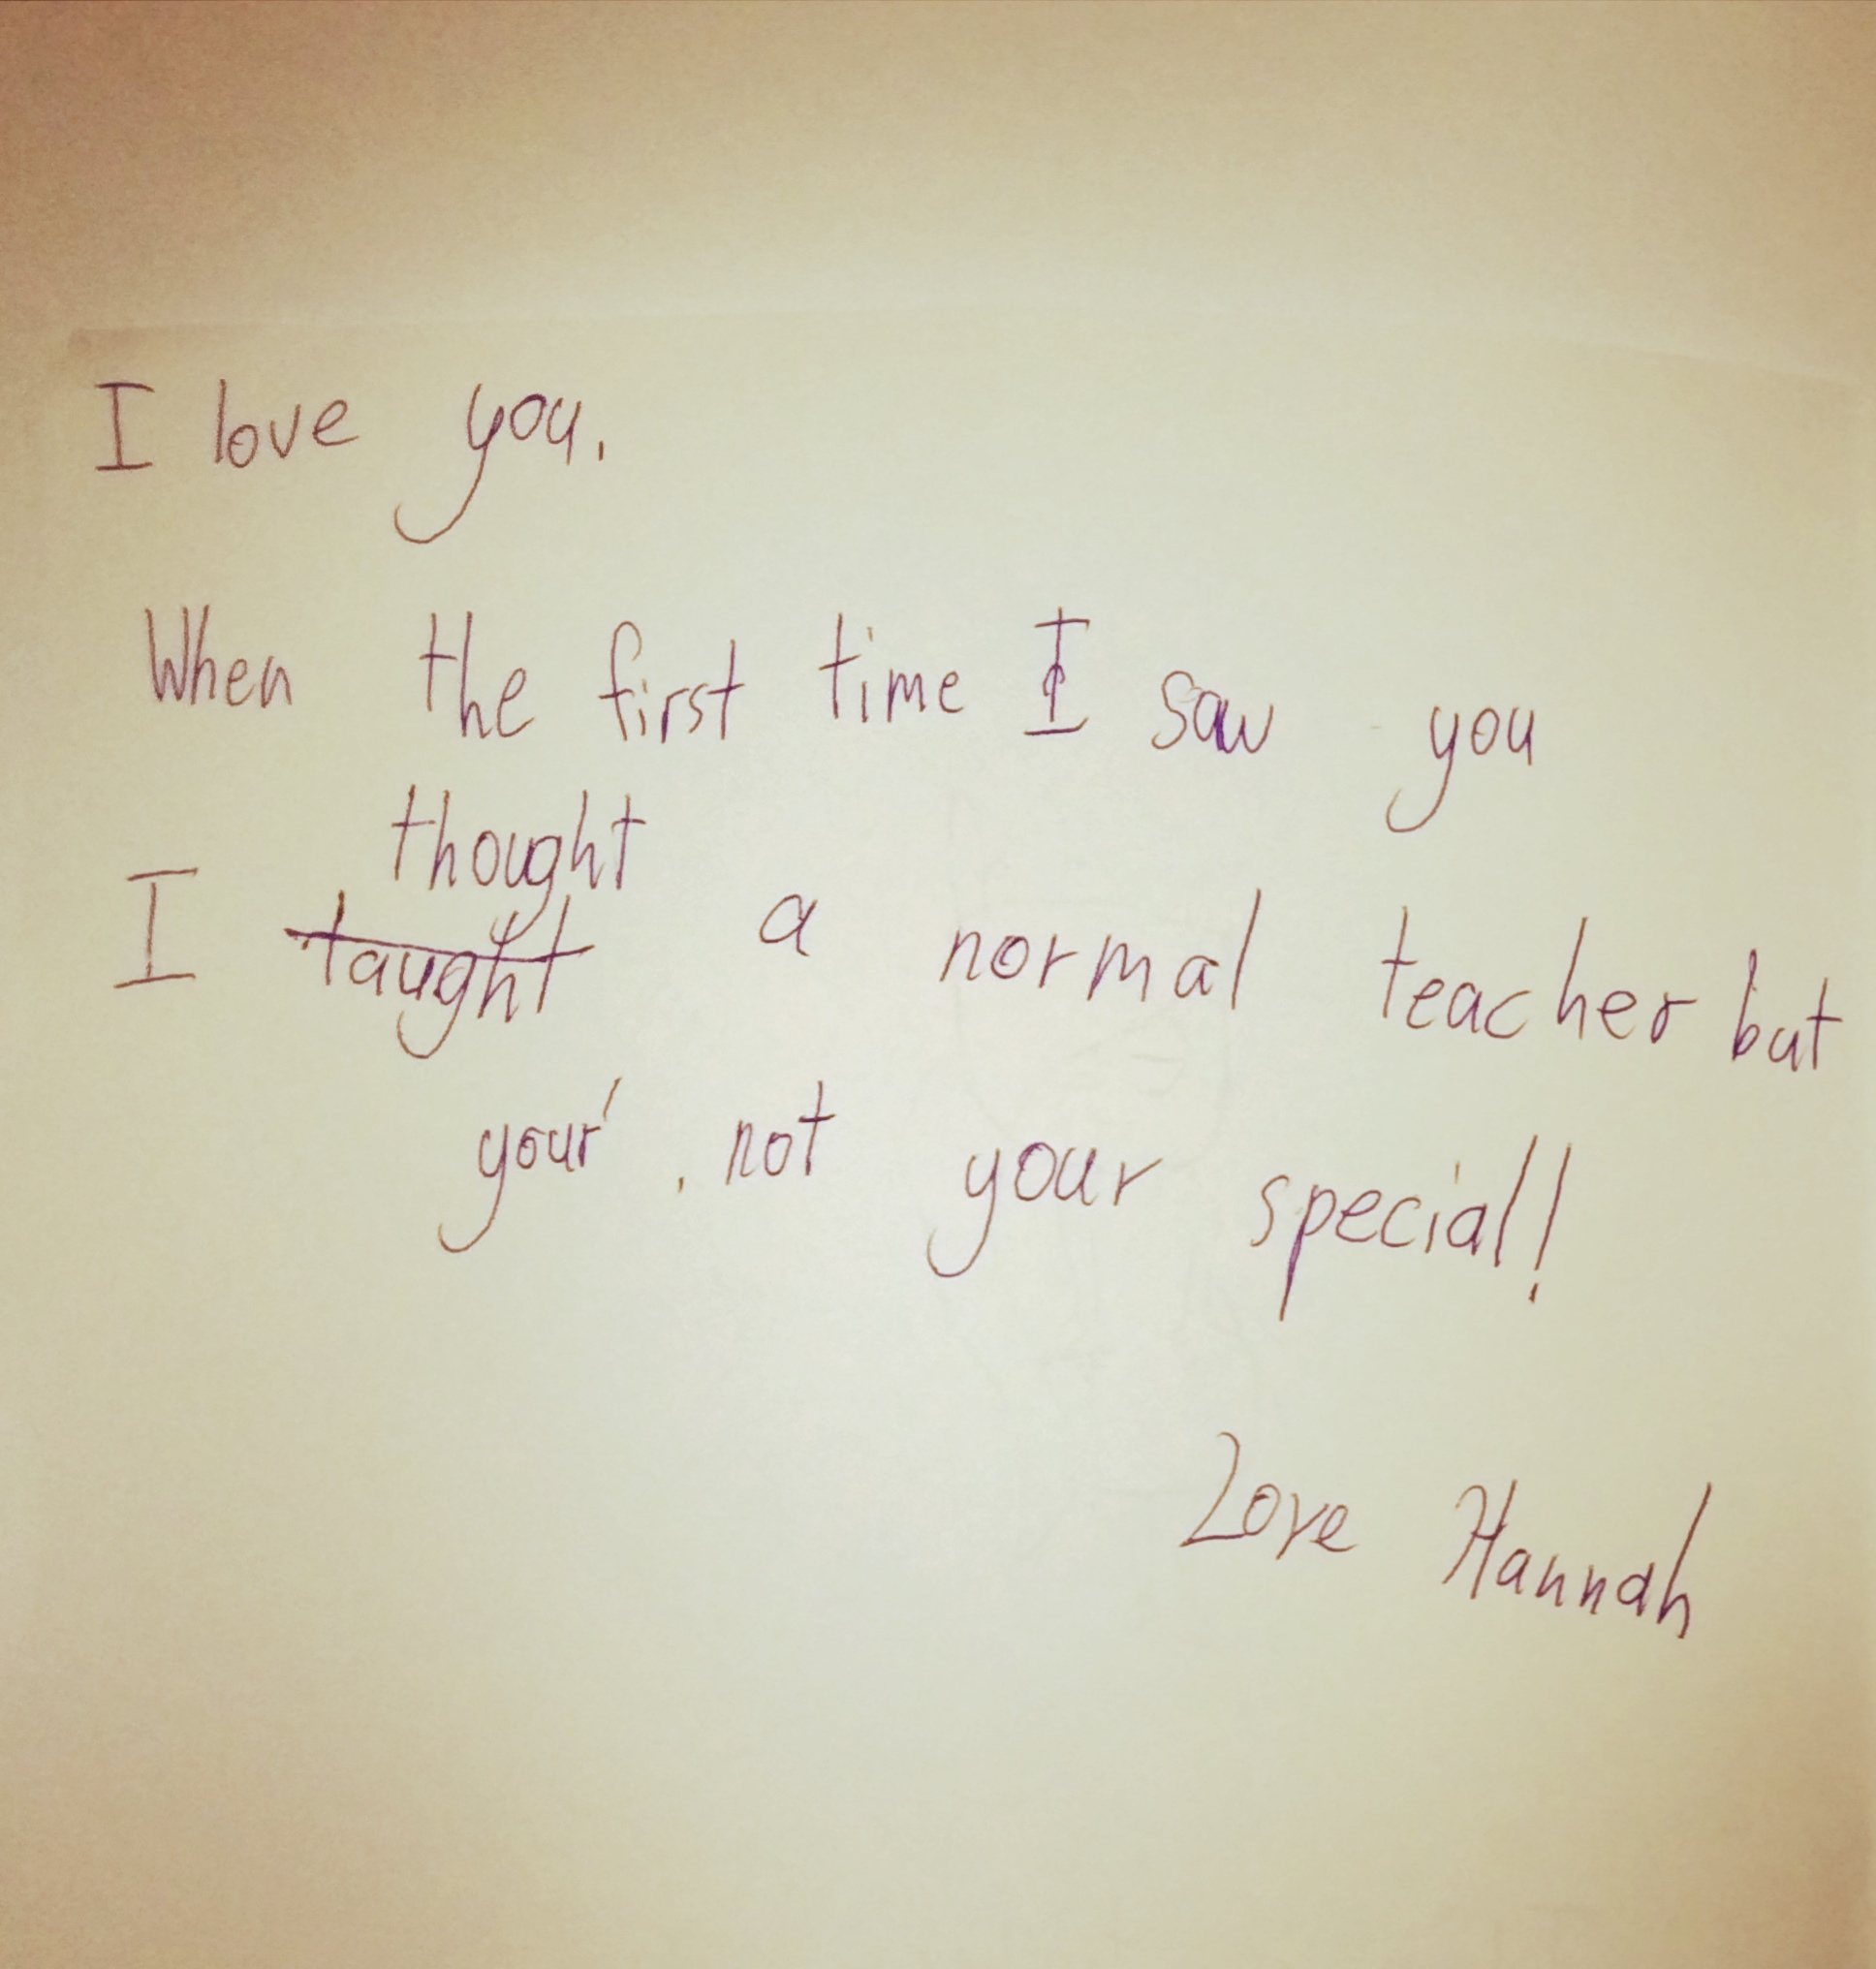 I love you.
When the first time I saw you
thought
I taught a normal teacher but
your' . not your special!
Love Hannah